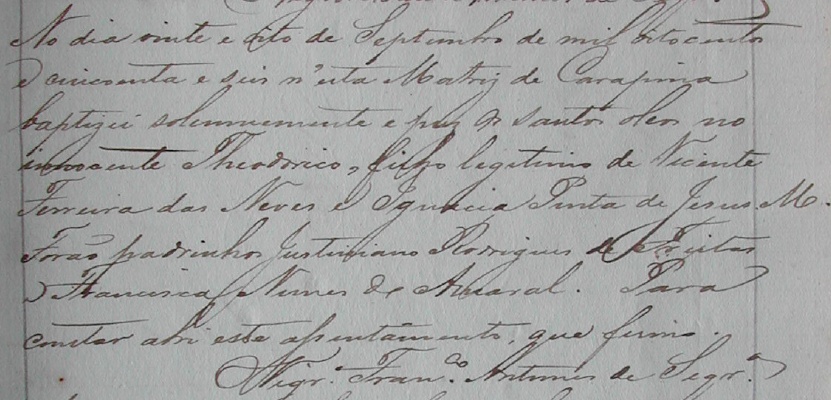 No dia vinte e oito de Septembro de mil oitocentos
e cincoenta e seis n'esta Matriz de Carapina
baptizei solemnemente e puz os santos oleos no
innocente Theodorico, filho legitimo de Vicente
Ferreira das Neves e Ignacia Pinta de Jesus M.
Forão padrinhos Justiniano Rodrigues de Freitas
e Francisca Nunes de Amaral. Para
constar abri este assentamento, que firmo.
Vigr.º Fran.co Antunes de Segr.ª